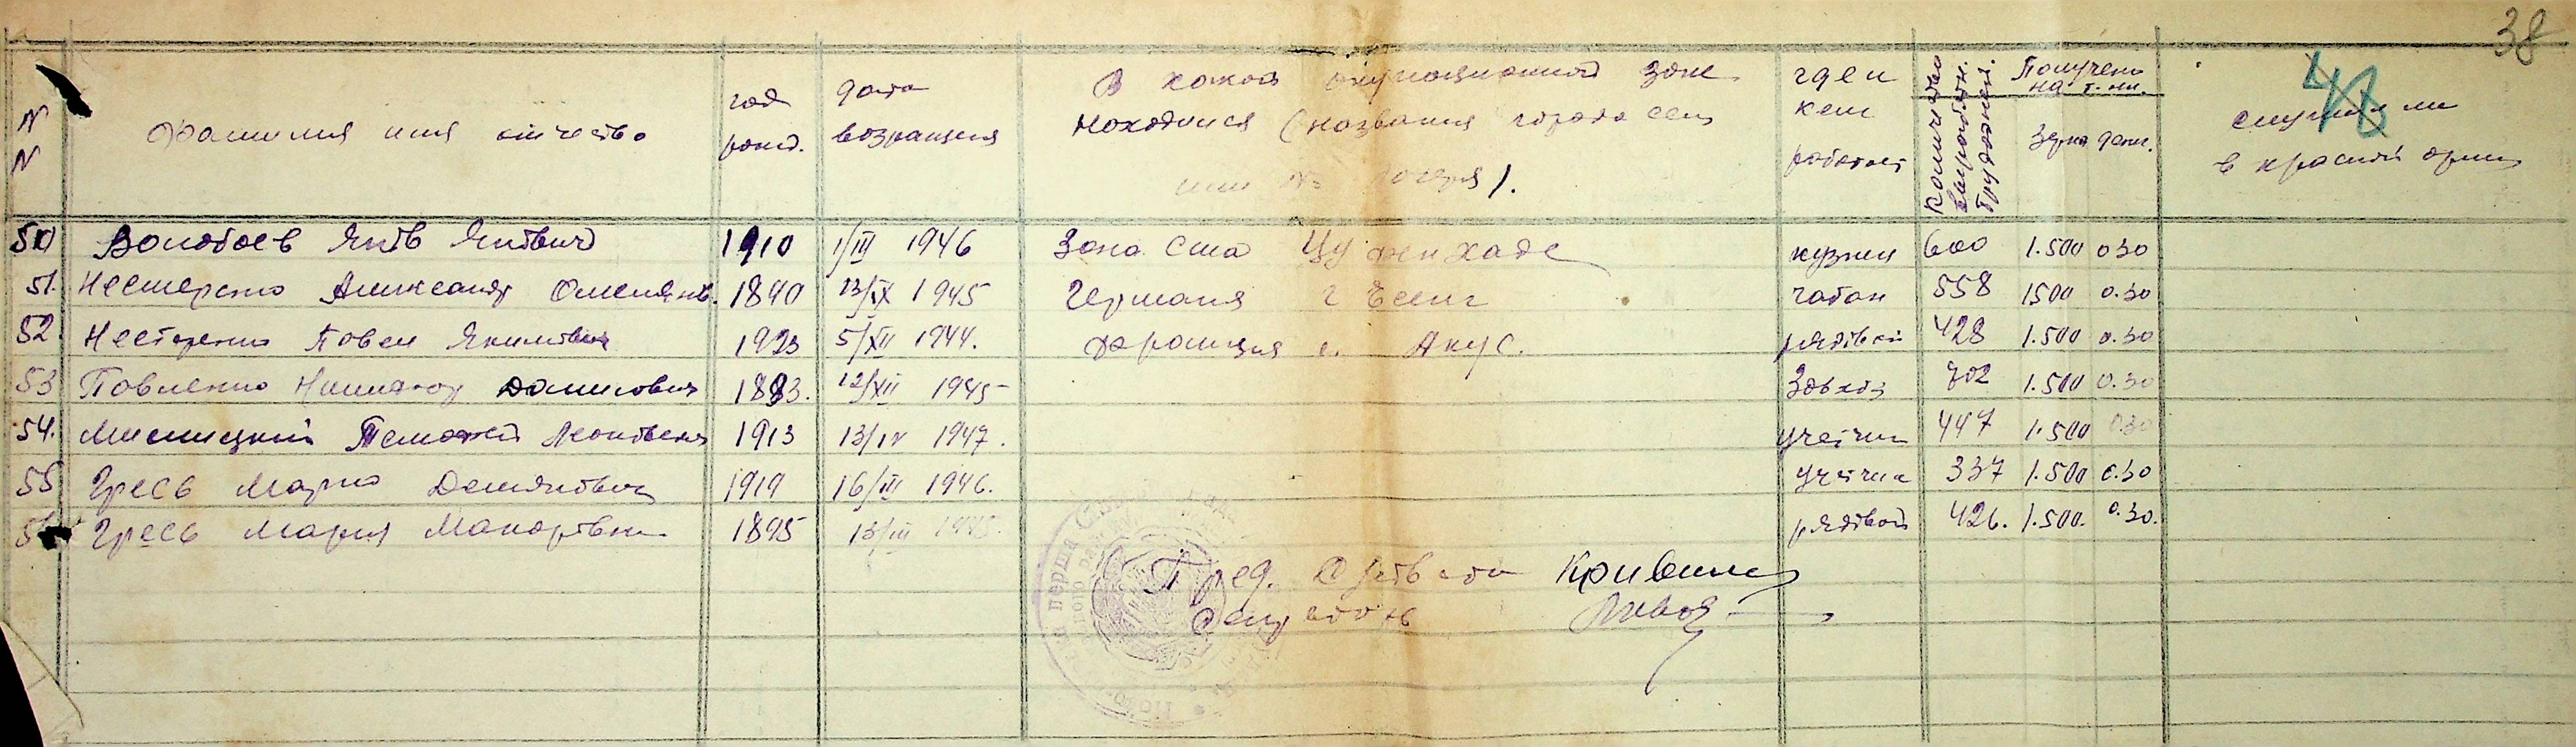 38
48
N N
фамилия имя отчество
год рожд.
дата возращения
В какой окупационной зоне находился (названия города села или № лагеря).
где и кем работает
Количество выработан. трудодней.
Получено на т. дн.
Зерна денег.
служил ли в красной армии
50 Волобоев Яков Яковлевич 1910 1/III 1946 Зона Сша кузнец 600 1.500 0 30
51. Нестеренко Александр 1890 13/IX 1945 Германия г чабан 558 1500 0.30
52. Нестеренко Повел Якимович 1923 5/XII 1944. Франция г. Акус. рядовой 428 1.500 0.30
53 Повленко Данилович 1883. 12/XII 1945 702 1.500 0.30
54. Леонтьевич 1913 13/IV 1947. учетчик 447 1.500 0.30
55 Гресь Марко Демянович 1919 16/III 1946. учетчик 337 1.500 0.30
Гресь Мария Макаровна 1895 13/III 1945. рядовой 426. 1.500. 0.30.
Пред. С/совета
Секретарь